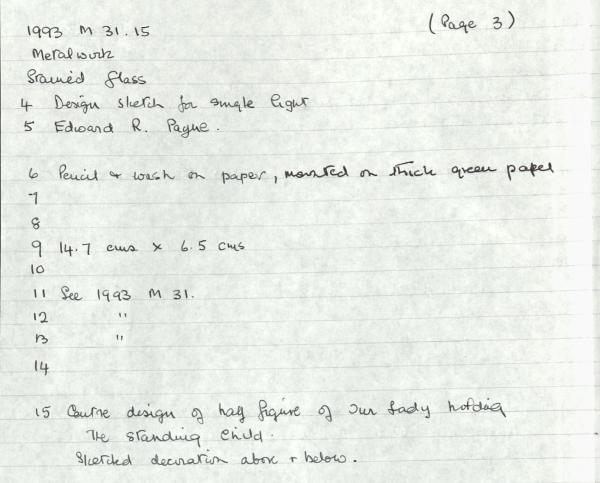 (Page 3)
1993 M 31.15
Metalwork
Stained Glass
4 Design sketch for single light
5 Edward R. Payne.
6 Pencil + wash on paper, mounted on thick green paper
7
8
9 14.7 cms × 6.5 cms
10
11 See 1993 M 31.
12 "
13 "
14
15 design of half figure of Our Lady holding
The standing Child.
Sketched decoration above + below.